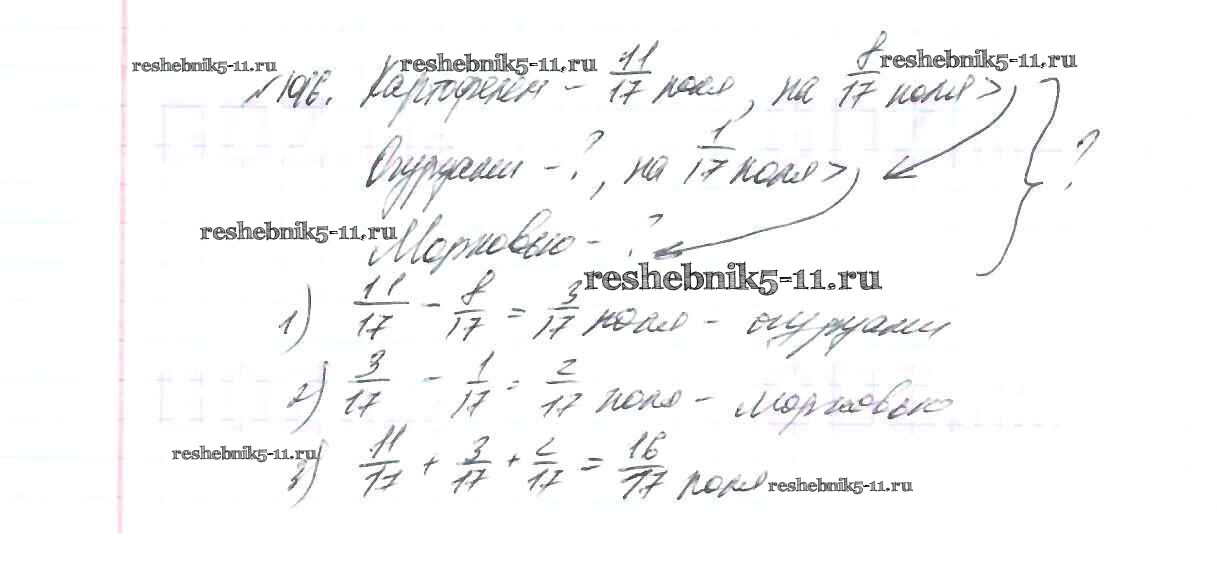 reshebnik5-11.ru
reshebnik5-11.ru
reshebnik5-11.ru
Картофелем - 11/17 поля, на 8/17 поля >,
Огурцами - ?, на 1/17 поля >, ?
reshebnik5-11.ru
Морковью - ?
reshebnik5-11.ru
1) 11/17 - 8/17 = 3/17 поля - огурцами
2) 3/17 - 1/17 = 2/17 поля - морковью
reshebnik5-11.ru
3) 11/17 + 3/17 + 2/17 = 16/17 поля
reshebnik5-11.ru